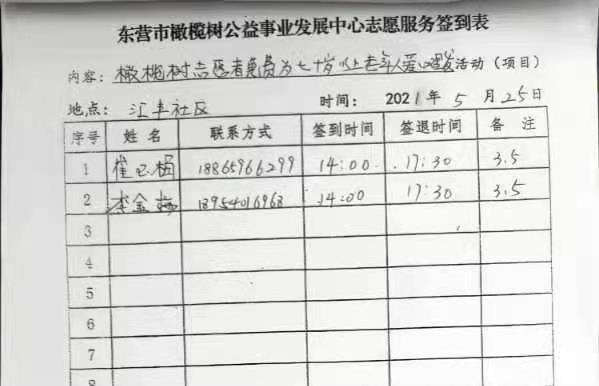 东营市橄榄树公益事业发展中心志愿服务签到表
内容：橄榄树志愿者免费为七十岁以上老年人爱心理发活动（项目）
地点：汇丰社区 时间：2021年5月25日
序号 姓名 联系方式 签到时间 签退时间 备注
1 崔 18865966299 14:00 17:30 3.5
2 李金梅 18954016968 14:00 17:30 3.5
3
4
5
6
7
8